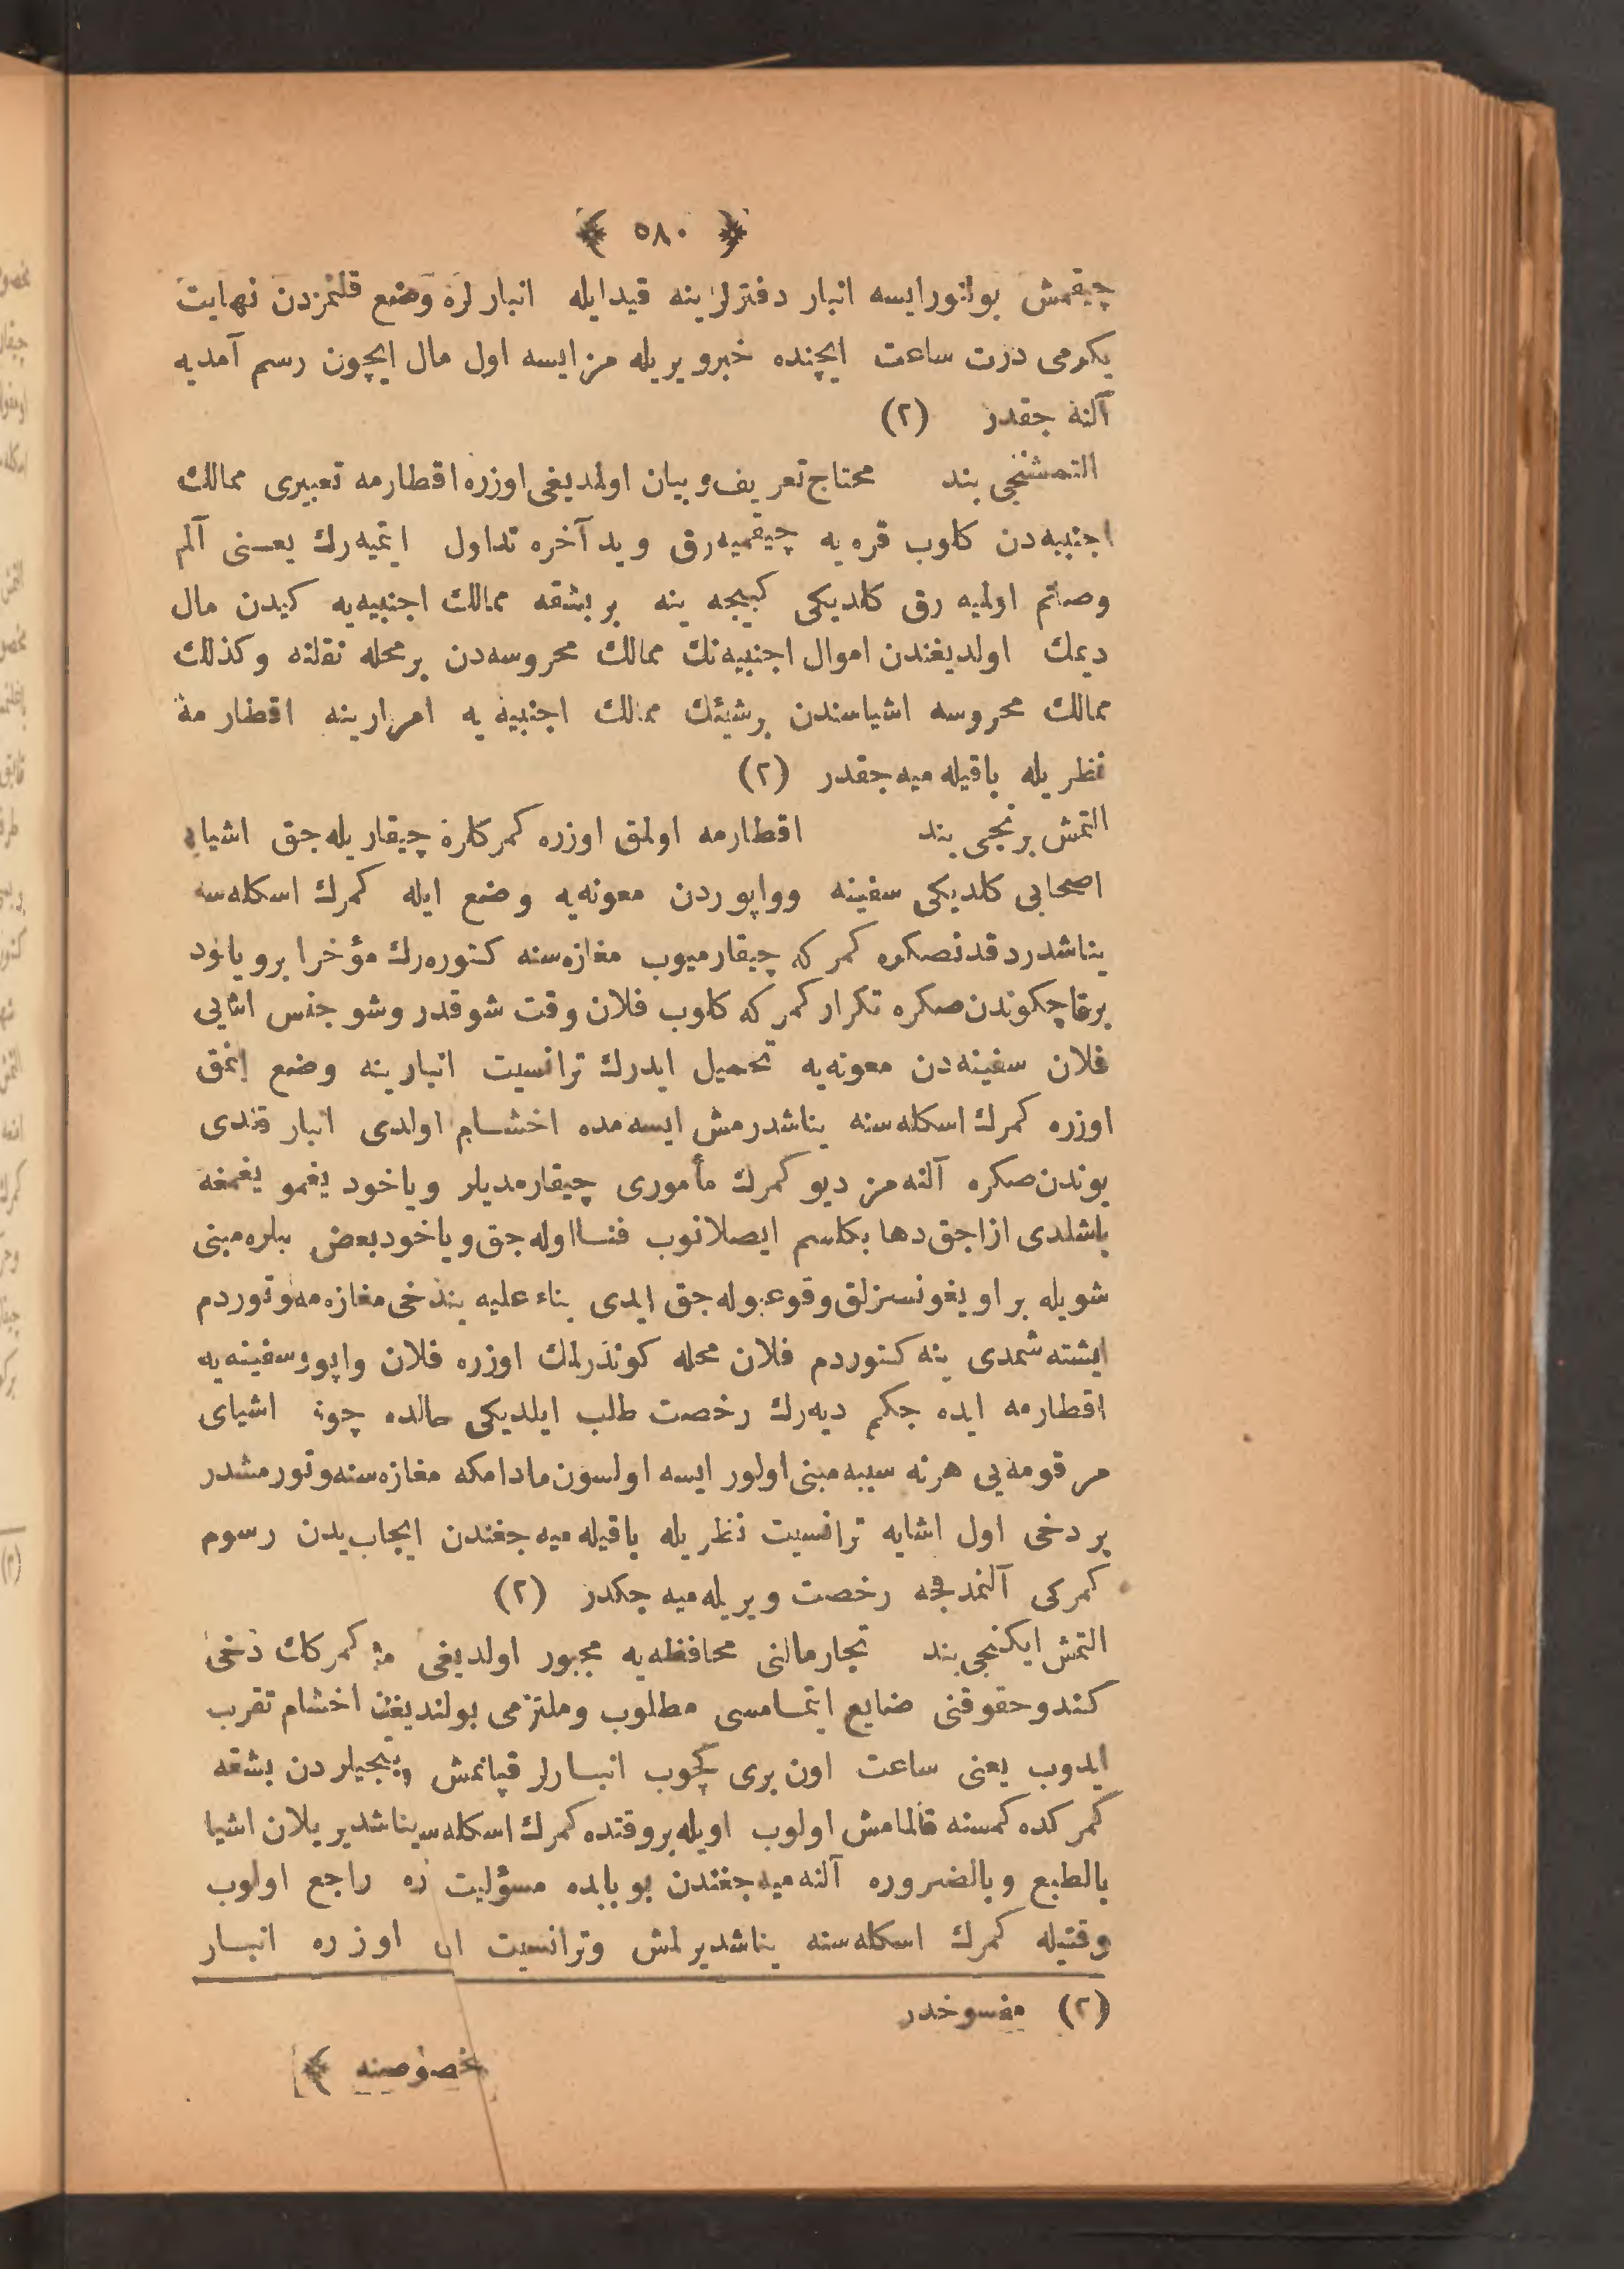 ﴿ ٥٨٠ ﴾
چيقمش بولنور ايسه انبار دفترلرينه قيد ايله انبارلره وضع قلنمزدن نهايت
يكرمى درت ساعت ايچنده خبر ويريله مز ايسه اول مال ايچون رسم آمديه
آلنه جقدر (٢)
التمشنجى بند محتاج تعريف و بيان اولمديغى اوزره اقطارمه تعبيرى ممالك
اجنبيه دن كلوب قره يه چيقميه رق و يد آخره تداول ايتميه رك يعنى آلم
وصاتم اولميه رق كلديكى كبيجه ينه بر بشقه ممالك اجنبيه يه كيدن مال
ديمك اولديغندن اموال اجنبيه نك ممالك محروسه دن بر محله نقلنه وكذلك
ممالك محروسه اشياسندن بر شيئك ممالك اجنبيه يه امرارينه اقطارمه
نظريله باقيله ميه جقدر (٢)
التمش برنجى بند اقطارمه اولمق اوزره كمركلره چيقاريله جق اشيا
اصحابى كلديكى سفينه وواپوردن معونه يه وضع ايله كمرك اسكله سنه
يناشدردقدنصكره كمركه چيقارميوب مغازه سنه كتوره رك مؤخرا بر وياخود
برقاچ كوندن صكره تكرار كمركه كلوب فلان وقت شو قدر وشو جنس اشيايى
فلان سفينه دن معونه يه تحميل ايدرك ترانسيت انبارينه وضع ايتمك
اوزره كمرك اسكله سنه يناشدرمش ايسه مده اخشام اولدى انبار قپندى
بوندن صكره آلنه مز ديو كمرك مأمورى چيقارمديلر وياخود يغمور يغمغه
باشلدى ازاجق دها بكلسم ايصلانوب فنا اوله جق وياخود بعض سببلره مبنى
شويله بر اويغونسزلق وقوعبوله جق ايدى بناء عليه بندخى مغازه مه كوتوردم
ايشته شمدى ينه كتوردم فلان محله كوندرلمك اوزره فلان واپور سفينه يه
اقطارمه ايده جكم ديه رك رخصت طلب ايلديكى حالده چونكه اشياى
مرقومه يى هر نه سببه مبنى اولور ايسه اولسون مادامكه مغازه سنه كوتورمشدر
بر دخى اول اشيايه ترانسيت نظريله باقيله ميه جغندن ايجاب ايدن رسوم
كمركى آلنمدقجه رخصت ويريله ميه جكدر (٢)
التمش ايكنجى بند تجار مالنى محافظه يه مجبور اولديغى مثللو كمركات دخى
كندو حقوقنى ضايع ايتمامسى مطلوب وملتزمى بولنديغندن اخشام تقرب
ايدوب يعنى ساعت اون برى كچوب انبارلر قپانمش وبكجيلردن بشقه
كمركده كمسنه قالمامش اولوب اويله بر وقتده كمرك اسكله سنه يناشديريلان اشيا
بالطبع وبالضروره آلنه ميه جغندن بو بابده مسؤليت تجاره راجع اولوب
وقتيله كمرك اسكله سنه يناشديرلمش وترانسيت اوزره انبار
(٢) مفسوخدر
خصوصنه ﴾